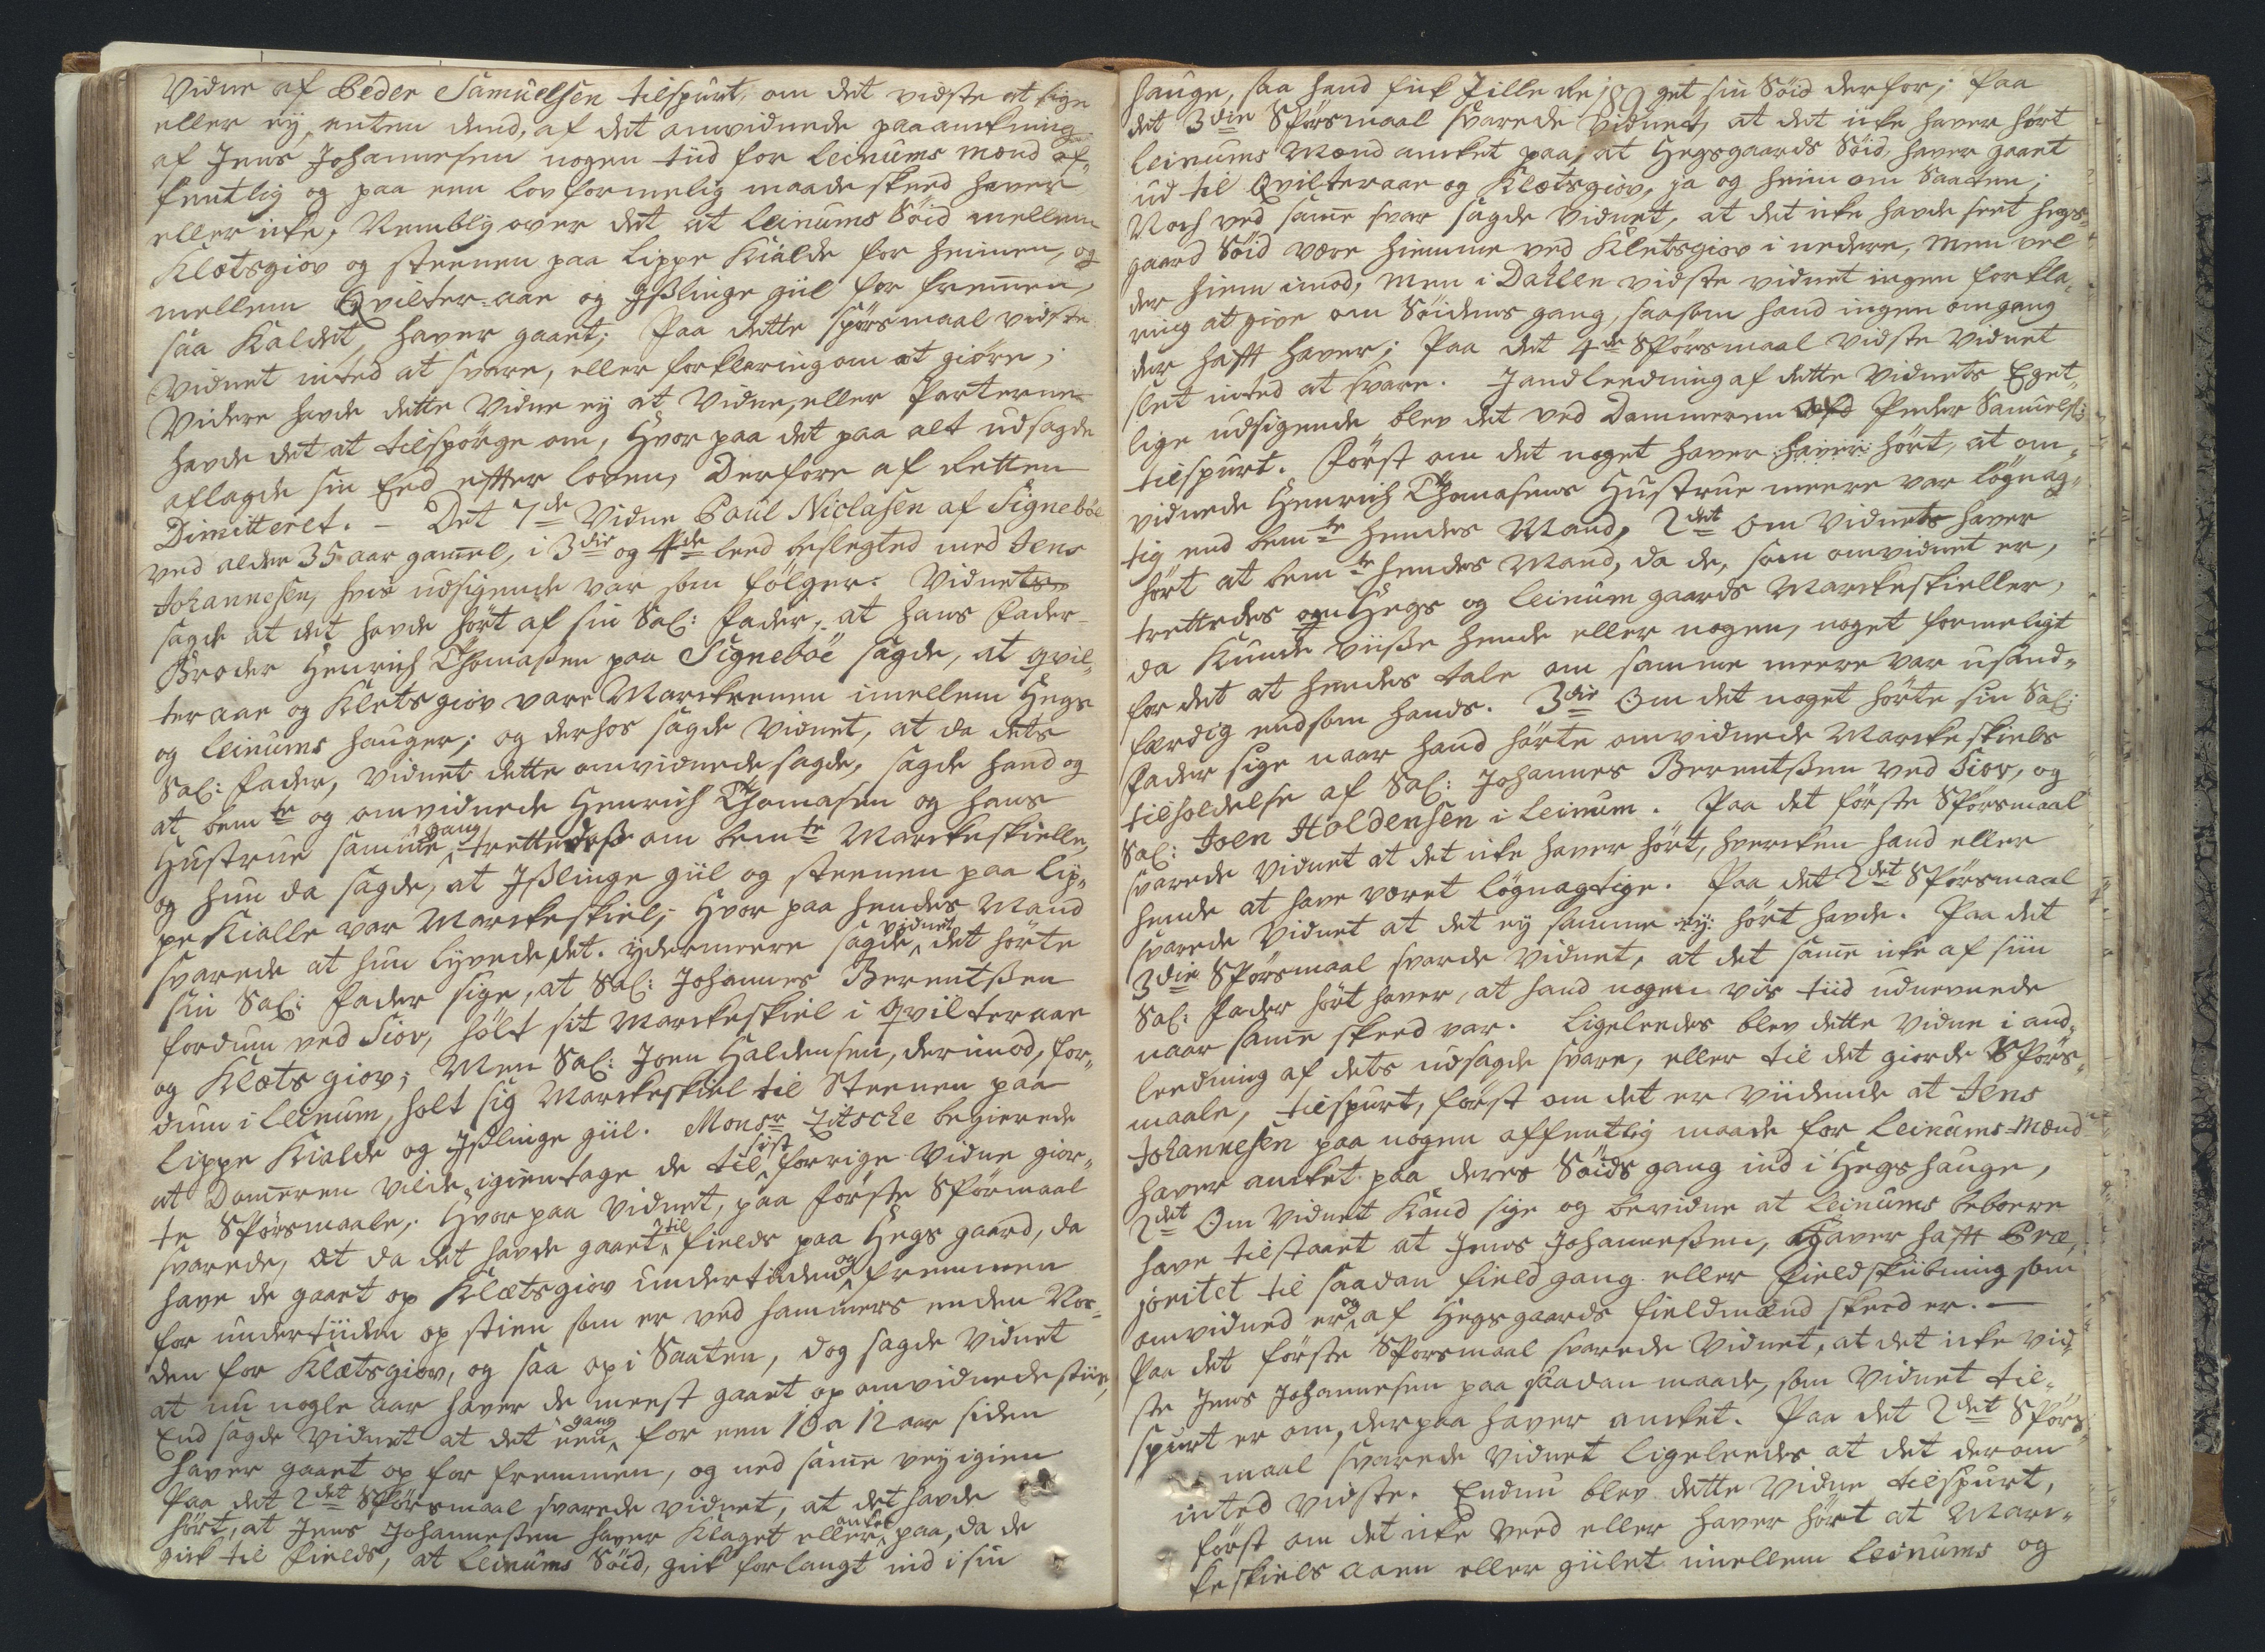 Vidne af Peder Samuelsen tilspurt, om det vidste at sige
eller eÿ, enten dend, af det omvidnede paaanckning
af Jens Johannesen nogen tiid for Leinums Mænd of¬
fentlig og paa een lovformelig maade skeed haver
eller icke, Nemblig over det at Leinums Söid mellem
Klætsgiov og steenen paa Lippe Kialde for heimen, og
mellem Qvilter-aae og Ißlinge giil for fremen,
saa Kaldet, haver gaaet; Paa dette spörsmaal vidste
Vidnet inted at svare, eller forklaring om at giöre;
Videre havde dette Vidne eÿ at Vidne, eller Parterne
havde det at tilspörge om, Hvor paa det paa alt udsagde
aflagde sin Eed effter loven, Derfore af Retten
Dimitteret. – Det 7de Vidne Poul Niclasen af Signeböe
ved alder 35 aar gamel, i 3die og 4de leed beslegted med Jens
Johannesen, hvis udsigende var som fölger: Vidnet
sagde at det havde hört af sin Sal: Fader, at hans Fader
Broder Henrich Thomasen paa Signeböe sagde, at qvil¬
ter aae og Kletsgiov vare Marckerne imellem Hegs
og Leinums hauger; og derhos sagde Vidnet, at da dets
Sal: Fader, Vidnet dette omvidnede sagde, sagde hand og
at bemte og omvidnede Henrich Thomasen og hans
Hustrue samme gang trettedeß om bemte Marckeskielle,
og hun da sagde, at Ißlinge giil og steenen paa Lip¬
pe Kialle var Marckeskiel; Hvor paa hendes Mand
svarede at hun lÿvede det. ÿdermeere sagde vidnet det hörte
sin Sal: Fader sige, at Sal: Johannes Berentßen
fordum ved Siov, hölt sit Marckeskiel i Qvilteraae
og Klæts giov; Men Sal: Joen Haldensen, derimod, for¬
dum i Leinum, holt sig Marckeskiel til Steenen paa
Lippe Kialde og Ißlinge giil. Monsr Zitsche begierede
at Domeren vilde igientage de til sist forrige Vidne gior¬
te Spörsmaale, Hvor paa Vidnet, paa förste Spörmaal
svarede, at da det havde gaaet til fields paa Hegs gaard, da
have de gaaet op Klætsgiov undertiiden og fremmen
for undertiiden op stien som er ved hammers enden Nor¬
den for Klætsgiov, og saa op i Saaten, dog sagde Vidnet
at nu nogle aar haver de meest gaaet op omvidnede stiie,
End sagde Vidnet at det een gang for een 10 a 12 aar siden
haver gaaet op for fremmen, og ned same veÿ igien
Paa det 2det Spörsmaal svarede vidnet, at det havde
hört, at Jens Johanneßen haver klaget eller ancket paa, da de
gick til fields, at Leinums Söid, gick for langt ind i sin
hauge, saa hand fick ille Re 189 get sin Söid derfor; Paa
det 3die Spörsmaal svarede Vidnet, at det icke haver hört
Leinums Mænd ancket paa, at Hegsgaards Söid, haver gaaet
ud til Qvilteraae og Klætsgiov, ja og heim om Saaten;
Noch ved same svar sagde Vidnet, at det icke havde seet Hegs¬
gaard Söid være hiemme ved Kletsgiov i nedere, men vel
der hiem imod; Men i Dahlen vidste vidnet ingen forkla¬
ring at give om Söidens gang, saasom hand ingen omgang
der hafft haver; Paa det 4de Spörsmaal vidste Vidnet
slet inted at svare. I andleedning af dette Vidnets Eget¬
lige udsigende blev det ved Dommeren af Peder Samuels:
tilspurt. Först om det noget haver haver hört, at om¬
vidnede Henrich Thomasens Hustrue meere var lögnag¬
tig end bemte hendes Mand, 2det Om Vidnet haver
hört at bemte hendes Mand, da de, som omvidnet er,
trettedes om Hegs og Leinum gaards Marckeskieller,
da kunde viiße hende eller nogen, noget formeligt
for det at hendes tale om samme meere var usand¬
færdig end som hands. 3die Om det noget hörte sin Sal:
Fader sige naar hand hörte omvidnede Marckeskiels
tilholdelse af Sal: Johannes Berentßen ved Siov, og
Sal: Joen Holdensen i Leinum. Paa det förste Spörsmaal
svarede Vidnet at det icke haver hört, hvercken hand eller
hende at have været lögnagtige. Paa det 2det Spörsmaal
svarede Vidnet at det eÿ samme eÿ: hört havde. Paa det
3die Spörsmaal svarde Vidnet, at det same icke af siin
Sal: Fader hört haver, at hand nogen vis tiid udnevnede
naar same skeed var. Ligeleedes blev dette Vidne i and¬
leedning af dets udsagde svare, eller til det giorde Spörs¬
maale, tilspurt, först om det er viidende at Jens
Johannesen paa nogen offentlig maade for Leinums Mænd
haver ancket paa deres Söids gang ind i Hegs hauge,
2det Om Vidnet kand sige og bevidne at Leinums beboere
have tilstaaet at Jens Johanneßen, haver hafft Præ¬
joritet til saadan field gang eller fieldskiibning som
omvidned er og af Hegsgaards fieldmænd skeed er. –
Paa det förste Sporsmaal svarede Vidnet, at det icke vid¬
ste Jens Johannesen paa saadan maade, som Vidnet til¬
spurt er om, derpaa haver ancket. Paa det 2det Spörs¬
maal svarede Vidnet ligeleedes at det derom
inted vidste. Endnu blev dette Vidne tilspurt,
först om det icke veed eller haver hört at Marc¬
keskiels aaen eller giilet imellem Leinums og